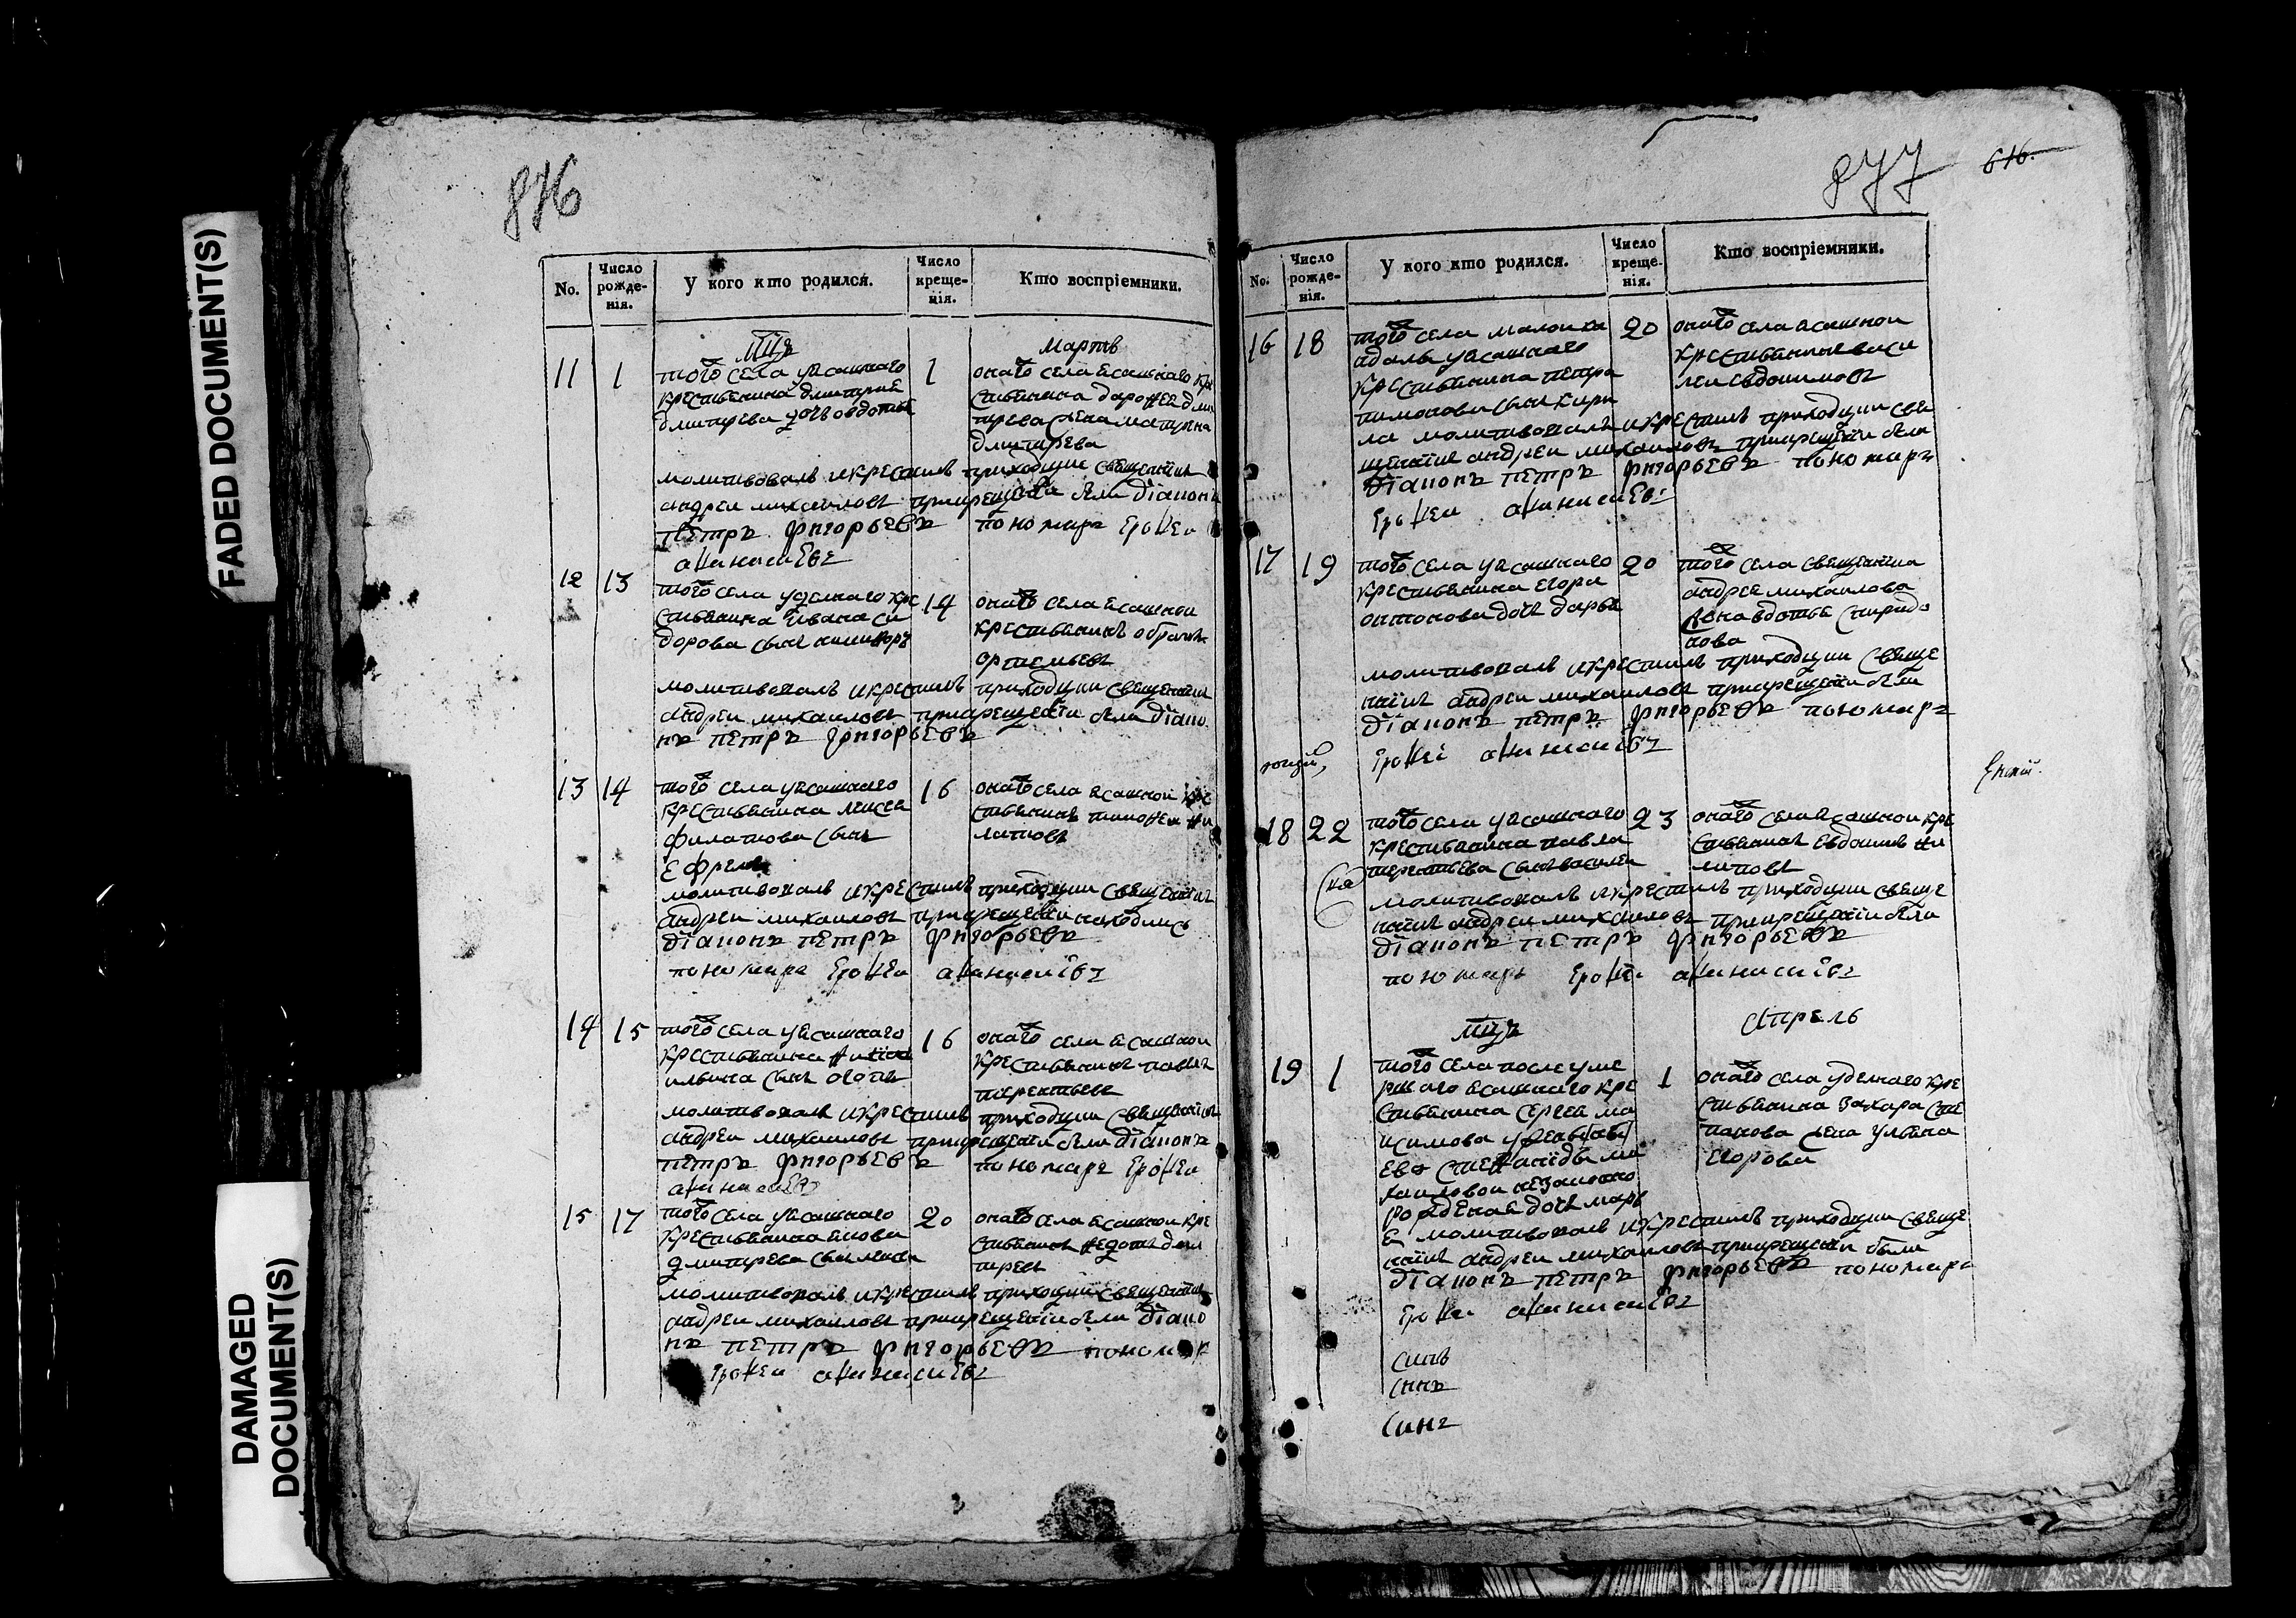 FADED DOCUMENT(S)
DAMAGED
DOCUMENT(S)
876
No.
Число рожденія.
У кого кто родился.
Число крещенія.
Кто воспріемники.
мцъ
мартъ
11 1
того села уясашнаго
крестьянина дмитрия
дмитрева дочь овдотья
1
онаго села ясашнаго кре
стьянина дорофея дми
трева жена матрена
дмитрева
молитвовалъ икрестилъ приходции священникъ
андреи михаиловъ прикрещении были діаконъ
петръ григорьевъ пономарь ерофеи
афинасиевъ
12 13
того села уделнаго кре
стьянина ивана си
дорова сынъ никифоръ
14
онаго села ясашнои
крестьянинъ
ортемьевъ
молитвовалъ икрестилъ приходции священникъ
андреи михаиловъ прикрещении были діако
нъ петръ григорьевъ
13 14
того села уясашнаго
крестьянина
филатова сынъ
ефремъ
16
онаго села ясашнои кре
стьянинъ тимофеи фи
липовъ
молитвовалъ икрестилъ приходции священникъ
андреи михаиловъ прикрещении находились
діаконъ петръ григорьевъ
пономарь ерофеи афинасиевъ
14 15
того села уясашнаго
крестьянина
ильина сынъ
16
онаго села ясашнои
крестьянинъ павелъ
терентьевъ
молитвовалъ икрестилъ приходции священникъ
андреи михаиловъ прикрещении были діаконъ
петръ григорьевъ пономарь ерофеи
афинасиевъ
15 17
того села уясашнаго
крестьянина якова
дмитрева сынъ
20
онаго села ясашнои кре
стьянинъ федотъ дми
треевъ
молитвовалъ икрестилъ приходции священникъ
андреи михаиловъ прикрещении были діако
нъ петръ григорьевъ
ерофеи афинасиевъ
877
616.
No.
Число рожденія.
У кого кто родился.
Число крещенія.
Кто воспріемники.
16 18
того села
уясашнаго
крестьянина петра
тимофова сынъ кири
20
онаго села ясашнои
крестьянинъ васи
леи евдокимовъ
ла молитвовалъ икрестилъ приходции свя
щенникъ андреи михаиловъ прикрещении были
діаконъ петръ григорьевъ пономарь
ерофеи афинасиевъ
17 19
того села уясашнаго
крестьянина егора
онтонова дочь дарья
20
того села священника
андрея михаилова
жена вдотья спиридо
нова
молитвовалъ икрестилъ приходции свяще
нникъ андреи михаиловъ прикрещении были
діаконъ петръ григорьевъ пономарь
ерофеи афинасиевъ
18 22
того села уясашнаго
крестьянина павла
терентьева сынъ василеи
23
онаго села ясашнои кре
стьянинъ евдокимъ фи
липовъ
молитвовалъ икрестилъ приходции свяще
нникъ андреи михаиловъ прикрещении были
діаконъ петръ григорьевъ
пономарь ерофеи афинасиевъ
мцъ
апрель
19 1
того села после уме
ршаго ясашнаго кре
стьянина сергея ма
ксимова
ево стефаниды ми
хаиловои незаконно
рожденая дочь марь
1
онаго села уделнаго кре
стьянина захара сте
панова жена ульяна
егорова
я молитвовалъ икрестилъ приходции свяще
нникъ андреи михаиловъ прикрещении были
діаконъ петръ григорьевъ пономарь
ерофеи афинасиевъ